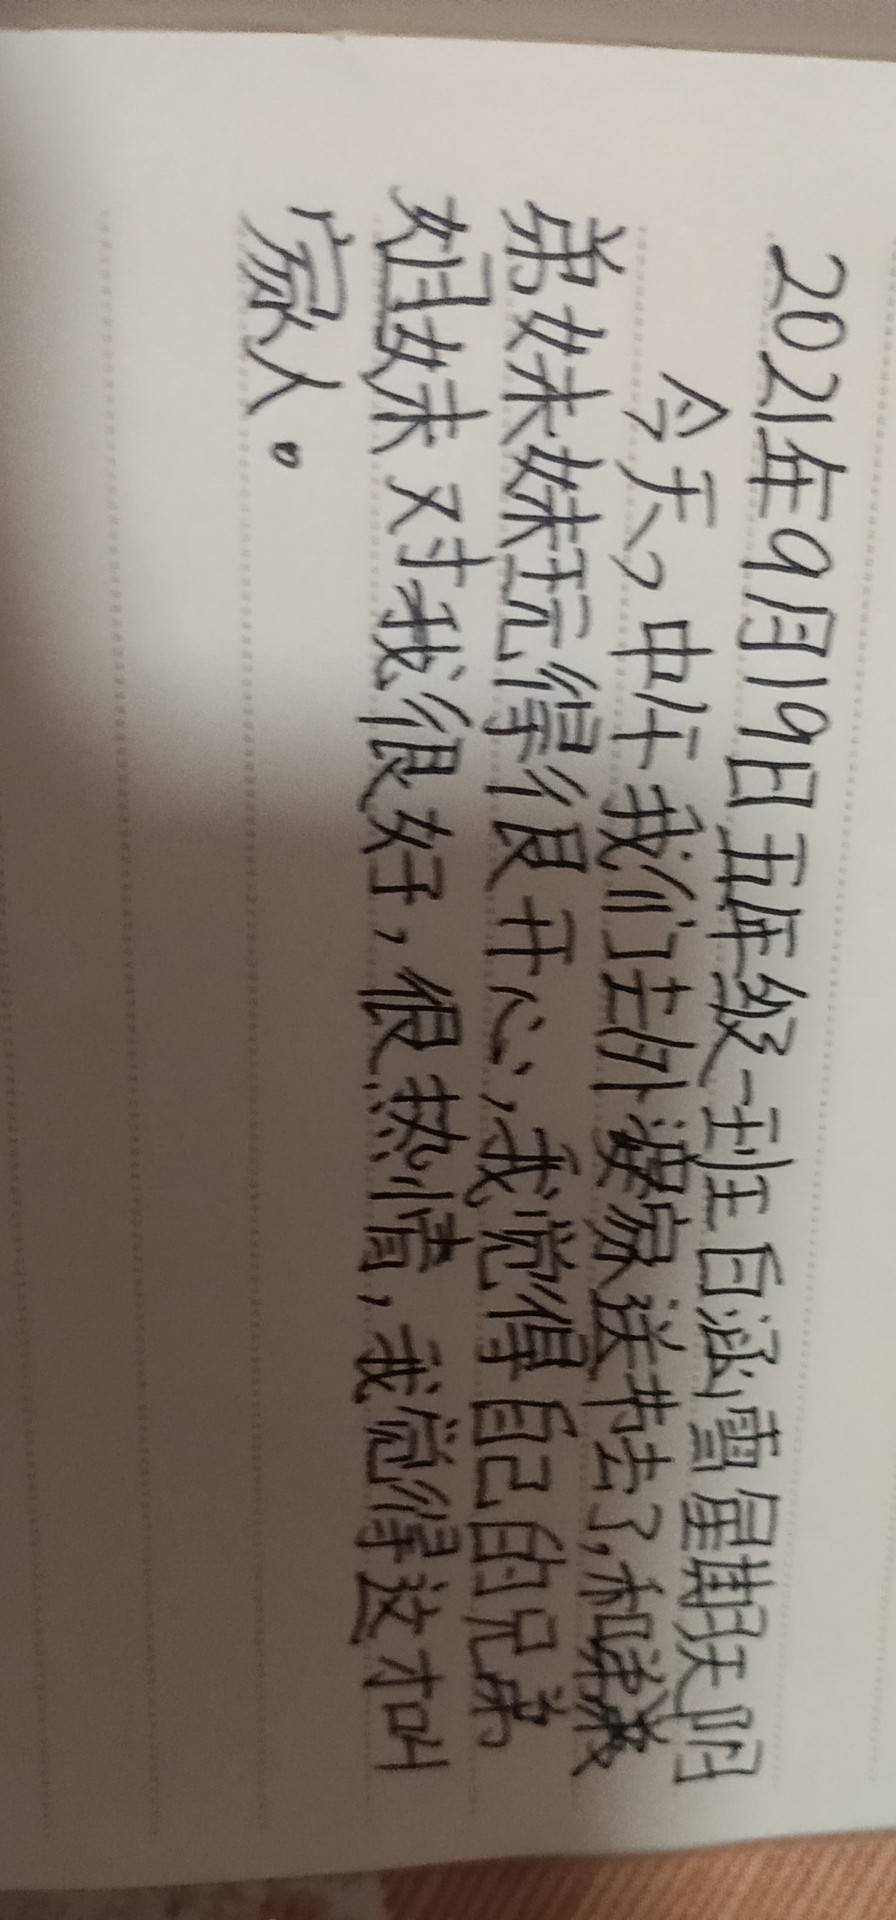 2021年9月19日五年级一班白涵雪星期天阴
今天,中午我们去外婆家送书去了,和弟
弟妹妹玩得很开心,我觉得自己的兄弟
姐妹对我很好,很热情,我觉得这才叫
家人。